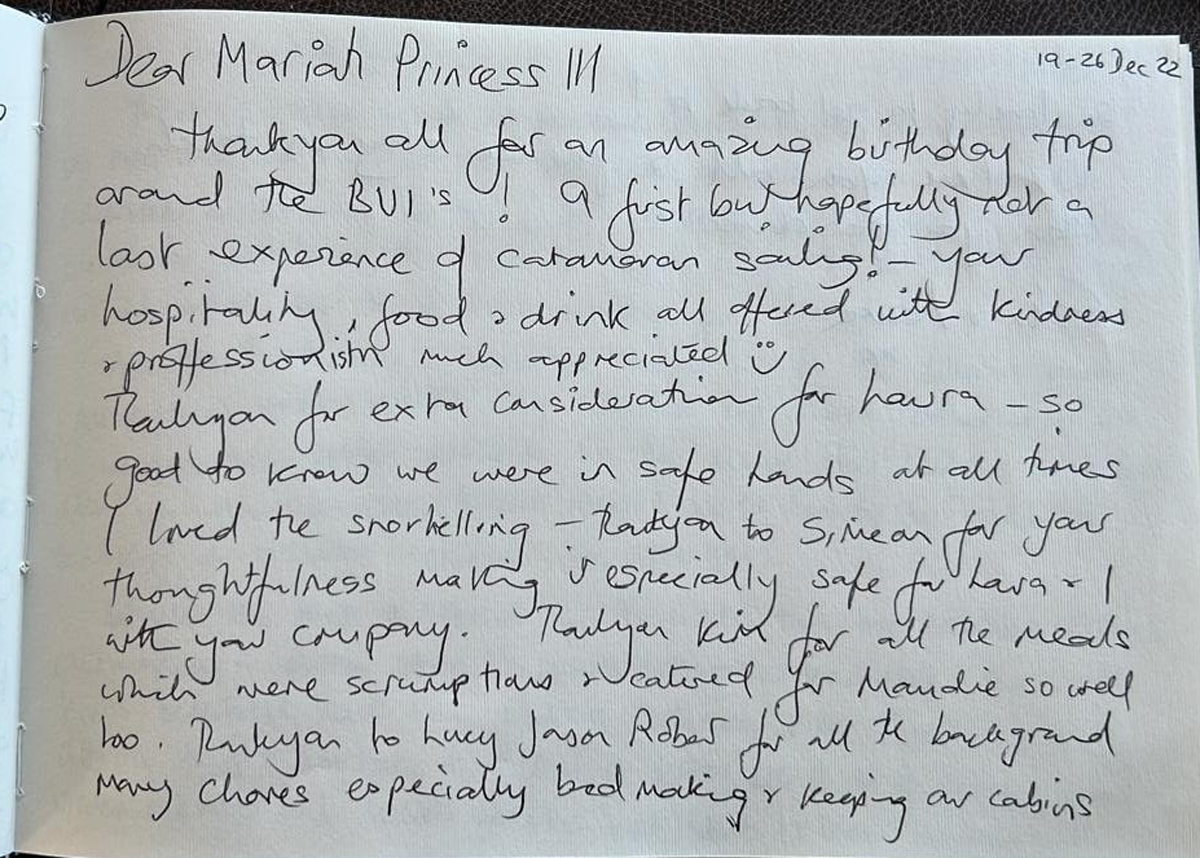 Dear Mariah Princess III
19-26 Dec 22
thankyou all for an amazing birthday trip
around the BVI's ! A first but hopefully not a
last experience of catamaran sailing! - your
hospitality, food & drink all offered with kindness
& proffessionism much appreciated
Thankyou for extra consideration for Laura - so
good to know we were in safe hands at all times
I loved the snorkelling - thankyou to Simeon for your
thoughtfulness making it especially safe for Laura & I
with your company. Thankyou Kim for all the meals
which were scrumptious & catered for Maudie so well
too. Thankyou to Lucy Jason Robert for all the background
many chores especially bed making & keeping our cabins